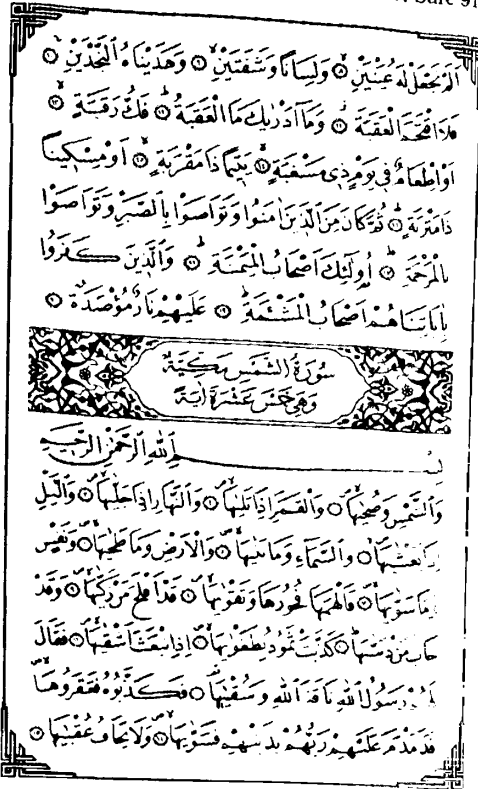 Sure 91
اَلَمْ نَجْعَلْ لَهُ عَيْنَيْنِۙ ﴿٨﴾ وَلِسَانًا وَشَفَتَيْنِۙ ﴿٩﴾ وَهَدَيْنَاهُ النَّجْدَيْنِۚ ﴿١٠﴾
فَلَا اقْتَحَمَ الْعَقَبَةَۘ ﴿١١﴾ وَمَٓا اَدْرٰيكَ مَا الْعَقَبَةُۜ ﴿١٢﴾ فَكُّ رَقَبَةٍۙ ﴿١٣﴾
اَوْ اِطْعَامٌ فِي يَوْمٍ ذِي مَسْغَبَةٍۙ ﴿١٤﴾ يَتِيمًا ذَا مَقْرَبَةٍۙ ﴿١٥﴾ اَوْ مِسْكِينًا
ذَا مَتْرَبَةٍۜ ﴿١٦﴾ ثُمَّ كَانَ مِنَ الَّذِينَ اٰمَنُوا وَتَوَاصَوْا بِالصَّبْرِ وَتَوَاصَوْا
بِالْمَرْحَمَةِۜ ﴿١٧﴾ اُو۬لٰٓئِكَ اَصْحَابُ الْمَيْمَنَةِۜ ﴿١٨﴾ وَالَّذِينَ كَفَرُوا
بِاٰيَاتِنَا هُمْ اَصْحَابُ الْمَشْـَٔمَةِۜ ﴿١٩﴾ عَلَيْهِمْ نَارٌ مُؤْصَدَةٌ ﴿٢٠﴾
سُورَةُ الشَّمْسِ مَكِّيَّةٌ
وَهِيَ خَمْسَ عَشْرَةَ اٰيَةً
بِسْمِ اللّٰهِ الرَّحْمٰنِ الرَّحِيمِ
وَالشَّمْسِ وَضُحٰيهَاۙ ﴿١﴾ وَالْقَمَرِ اِذَا تَلٰيهَاۙ ﴿٢﴾ وَالنَّهَارِ اِذَا جَلّٰيهَاۙ ﴿٣﴾ وَالَّيْلِ
اِذَا يَغْشٰيهَاۙ ﴿٤﴾ وَالسَّمَٓاءِ وَمَا بَنٰيهَاۙ ﴿٥﴾ وَالْاَرْضِ وَمَا طَحٰيهَاۙ ﴿٦﴾ وَنَفْسٍ
وَمَا سَوّٰيهَاۙ ﴿٧﴾ فَاَلْهَمَهَا فُجُورَهَا وَتَقْوٰيهَاۙ ﴿٨﴾ قَدْ اَفْلَحَ مَنْ زَكّٰيهَاۙ ﴿٩﴾ وَقَدْ
خَابَ مَنْ دَسّٰيهَاۜ ﴿١٠﴾ كَذَّبَتْ ثَمُودُ بِطَغْوٰيهَاۙ ﴿١١﴾ اِذِ انْبَعَثَ اَشْقٰيهَاۙ ﴿١٢﴾ فَقَالَ
لَهُمْ رَسُولُ اللّٰهِ نَاقَةَ اللّٰهِ وَسُقْيٰهَاۜ ﴿١٣﴾ فَكَذَّبُوهُ فَعَقَرُوهَاۙ
فَدَمْدَمَ عَلَيْهِمْ رَبُّهُمْ بِذَنْبِهِمْ فَسَوّٰيهَاۙ ﴿١٤﴾ وَلَا يَخَافُ عُقْبٰيهَا ﴿١٥﴾